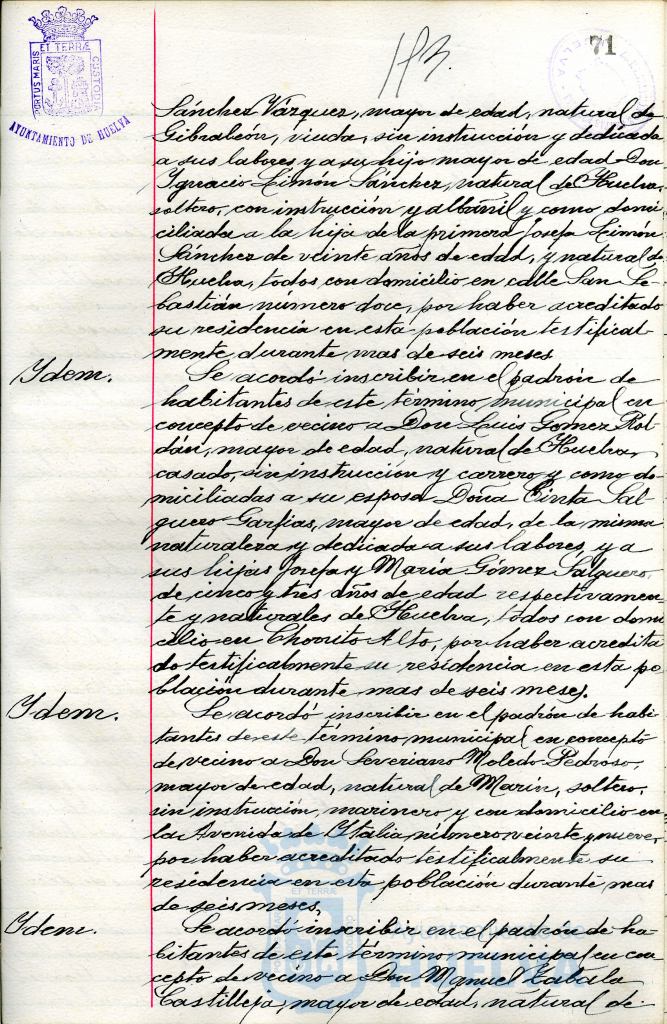 71
113.
PORTUS MARIS ET TERRÆ CUSTODIA
AYUNTAMIENTO DE HUELVA
Sánchez Vázquez, mayor de edad, natural de
Gibraleón, viuda, sin instrucción y dedicada
a sus labores y a su hijo mayor de edad Don
Ignacio Limón Sánchez, natural de Huelva,
soltero, con instrucción y albañil y como domi-
ciliada a la hija de la primera Josefa Limón
Sánchez de veinte años de edad, y natural de
Huelva, todos con domicilio en calle San Se-
bastián número doce, por haber acreditado
su residencia en esta población testifical-
mente, durante mas de seis meses
Ydem.
Se acordó inscribir en el padrón de
habitantes de este término municipal en
concepto de vecino a Don Luis Gomez Rol-
dán, mayor de edad, natural de Huelva,
casado, sin instrucción y carrero y como do-
miciliadas a su esposa Doña Cinta Sal-
guero Garfias, mayor de edad, de la misma
naturaleza y dedicada a sus labores, y a
sus hijas Josefa y María Gómez Salguero,
de cinco y tres años de edad respectivamen-
te y naturales de Huelva, todos con domi-
cilio en Chorrito Alto, por haber acredita
do testificalmente su residencia en esta po-
blación durante mas de seis meses.
Ydem.
Se acordó inscribir en el padrón de habi-
tantes de este término municipal en concepto
de vecino a Don Severiano Moledo Pedroso,
mayor de edad, natural de Marín, soltero,
sin instrucción, marinero y con domicilio en
la Avenida de Italia, número veinte y nueve,
por haber acreditado testificalmente su
residencia en esta población durante mas
de seis meses.
Ydem.
Se acordó inscribir en el padrón de ha-
bitantes de este término municipal en con-
cepto de vecino a Don Manuel Zabala
Castilleja, mayor de edad, natural de